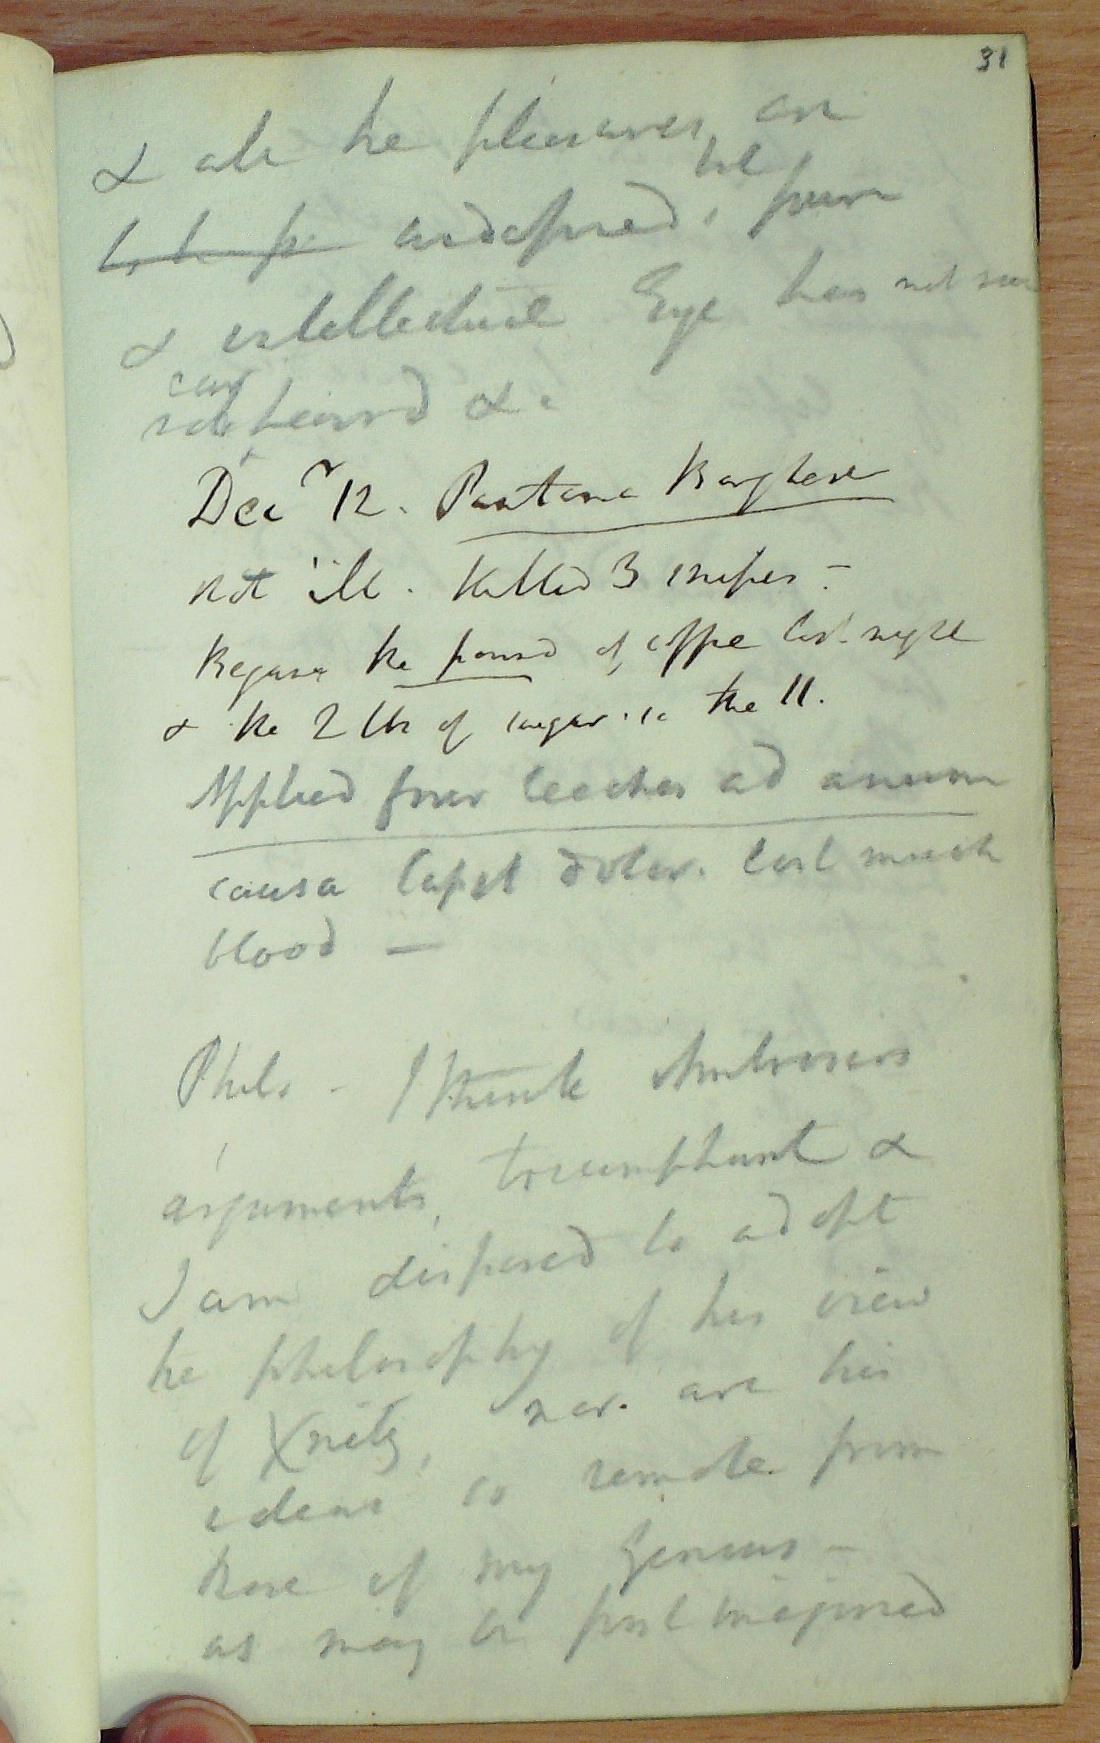 31
& all the pleasures are
will
undefined, pure
& intellectual Eye has not seen
ear
not heard &c
Decr 12. Pantana Borghese
not ill. Killed 3 snipes -
Began the pound of coffee last night
& the 2 lbs of sugar in the 11.
Applied four leeches ad anum
causa capit dolor. lost much
blood —
Philo - I think Ambrosios
arguments triumphant &
I am disposed to adopt
the philosophy of his view
of Xnity, nor are his
ideas so remote from
those of my Genius -
as may be first imagined